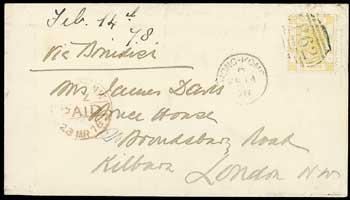 Feb. 14th
78
via Brindisi
HONG-KONG
Mrs. James Davis
PAID
23 MR 78
House
Brondesbury Road
Kilburn
London N.W